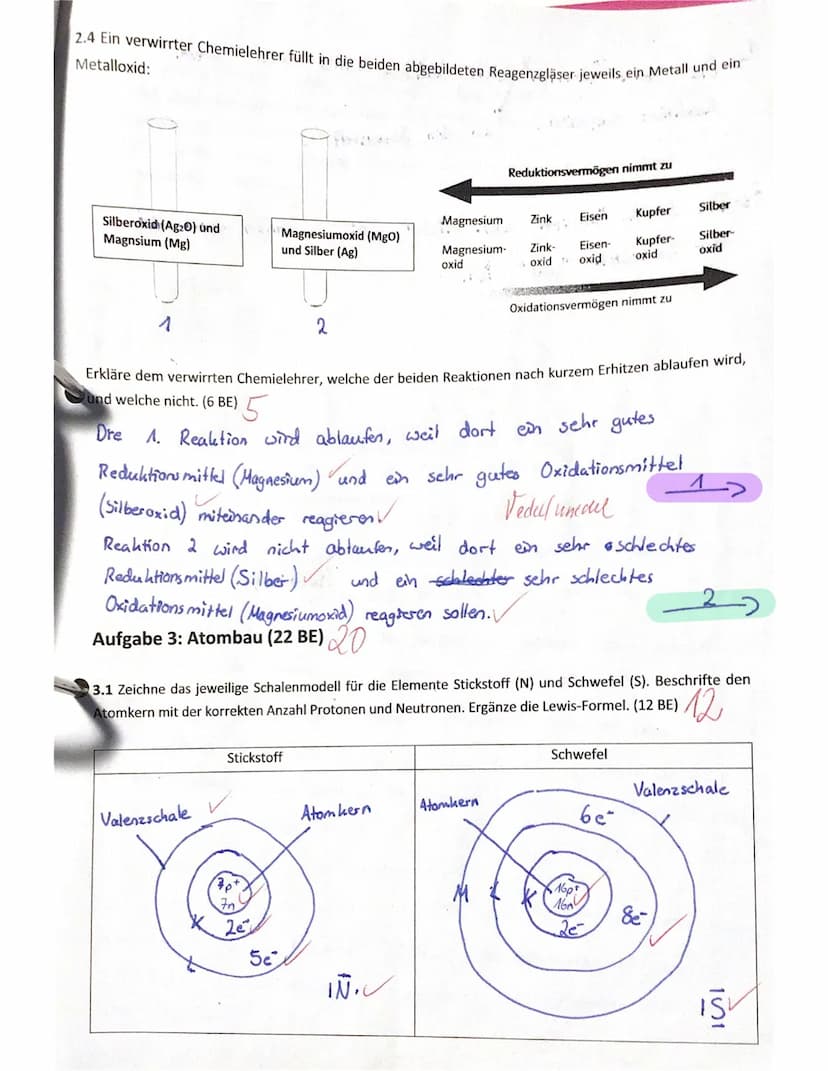 2.4 Ein verwirrter Chemielehrer füllt in die beiden abgebildeten Reagenzgläser jeweils ein Metall und ein
Metalloxid:
Silberoxid (Ag₂O) und
Magnsium (Mg)
1
Magnesiumoxid (MgO)
und Silber (Ag)
2
Reduktionsvermögen nimmt zu
Magnesium Zink Eisen Kupfer Silber
Magnesium- Zink- Eisen- Kupfer- Silber-
oxid oxid oxid oxid oxid
Oxidationsvermögen nimmt zu
Erkläre dem verwirrten Chemielehrer, welche der beiden Reaktionen nach kurzem Erhitzen ablaufen wird,
und welche nicht. (6 BE) 5
Die 1. Reaktion wird ablaufen, weil dort ein sehr gutes
Reduktionsmittel (Magnesium) und ein sehr gutes Oxidationsmittel
1
(Silberoxid) miteinander reagieren edel/unedel
Reaktion 2 wird nicht ablaufen, weil dort ein sehr schlechtes
Reduktionsmittel (Silber) und ein schlechter sehr schlechtes
2
Oxidationsmittel (Magnesiumoxid) reagieren sollen.
Aufgabe 3: Atombau (22 BE) 20
3.1 Zeichne das jeweilige Schalenmodell für die Elemente Stickstoff (N) und Schwefel (S). Beschrifte den
Atomkern mit der korrekten Anzahl Protonen und Neutronen. Ergänze die Lewis-Formel. (12 BE) 12
Stickstoff
Valenzschale
Atomkern
7p⁺
7n
K 2e⁻
L 5e⁻
N
Schwefel
Atomkern
Valenzschale
6e⁻
M L K
16p⁺
16n
2e⁻
8e⁻
S